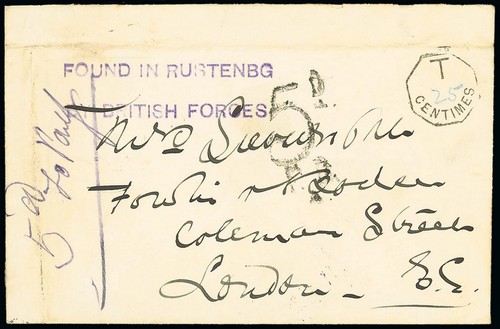 FOUND IN RUSTENBG
BRITISH FORCES
T
25
CENTIMES
5d
5d to Pay
Mrs
Fowler &
Coleman Street
London E.C.